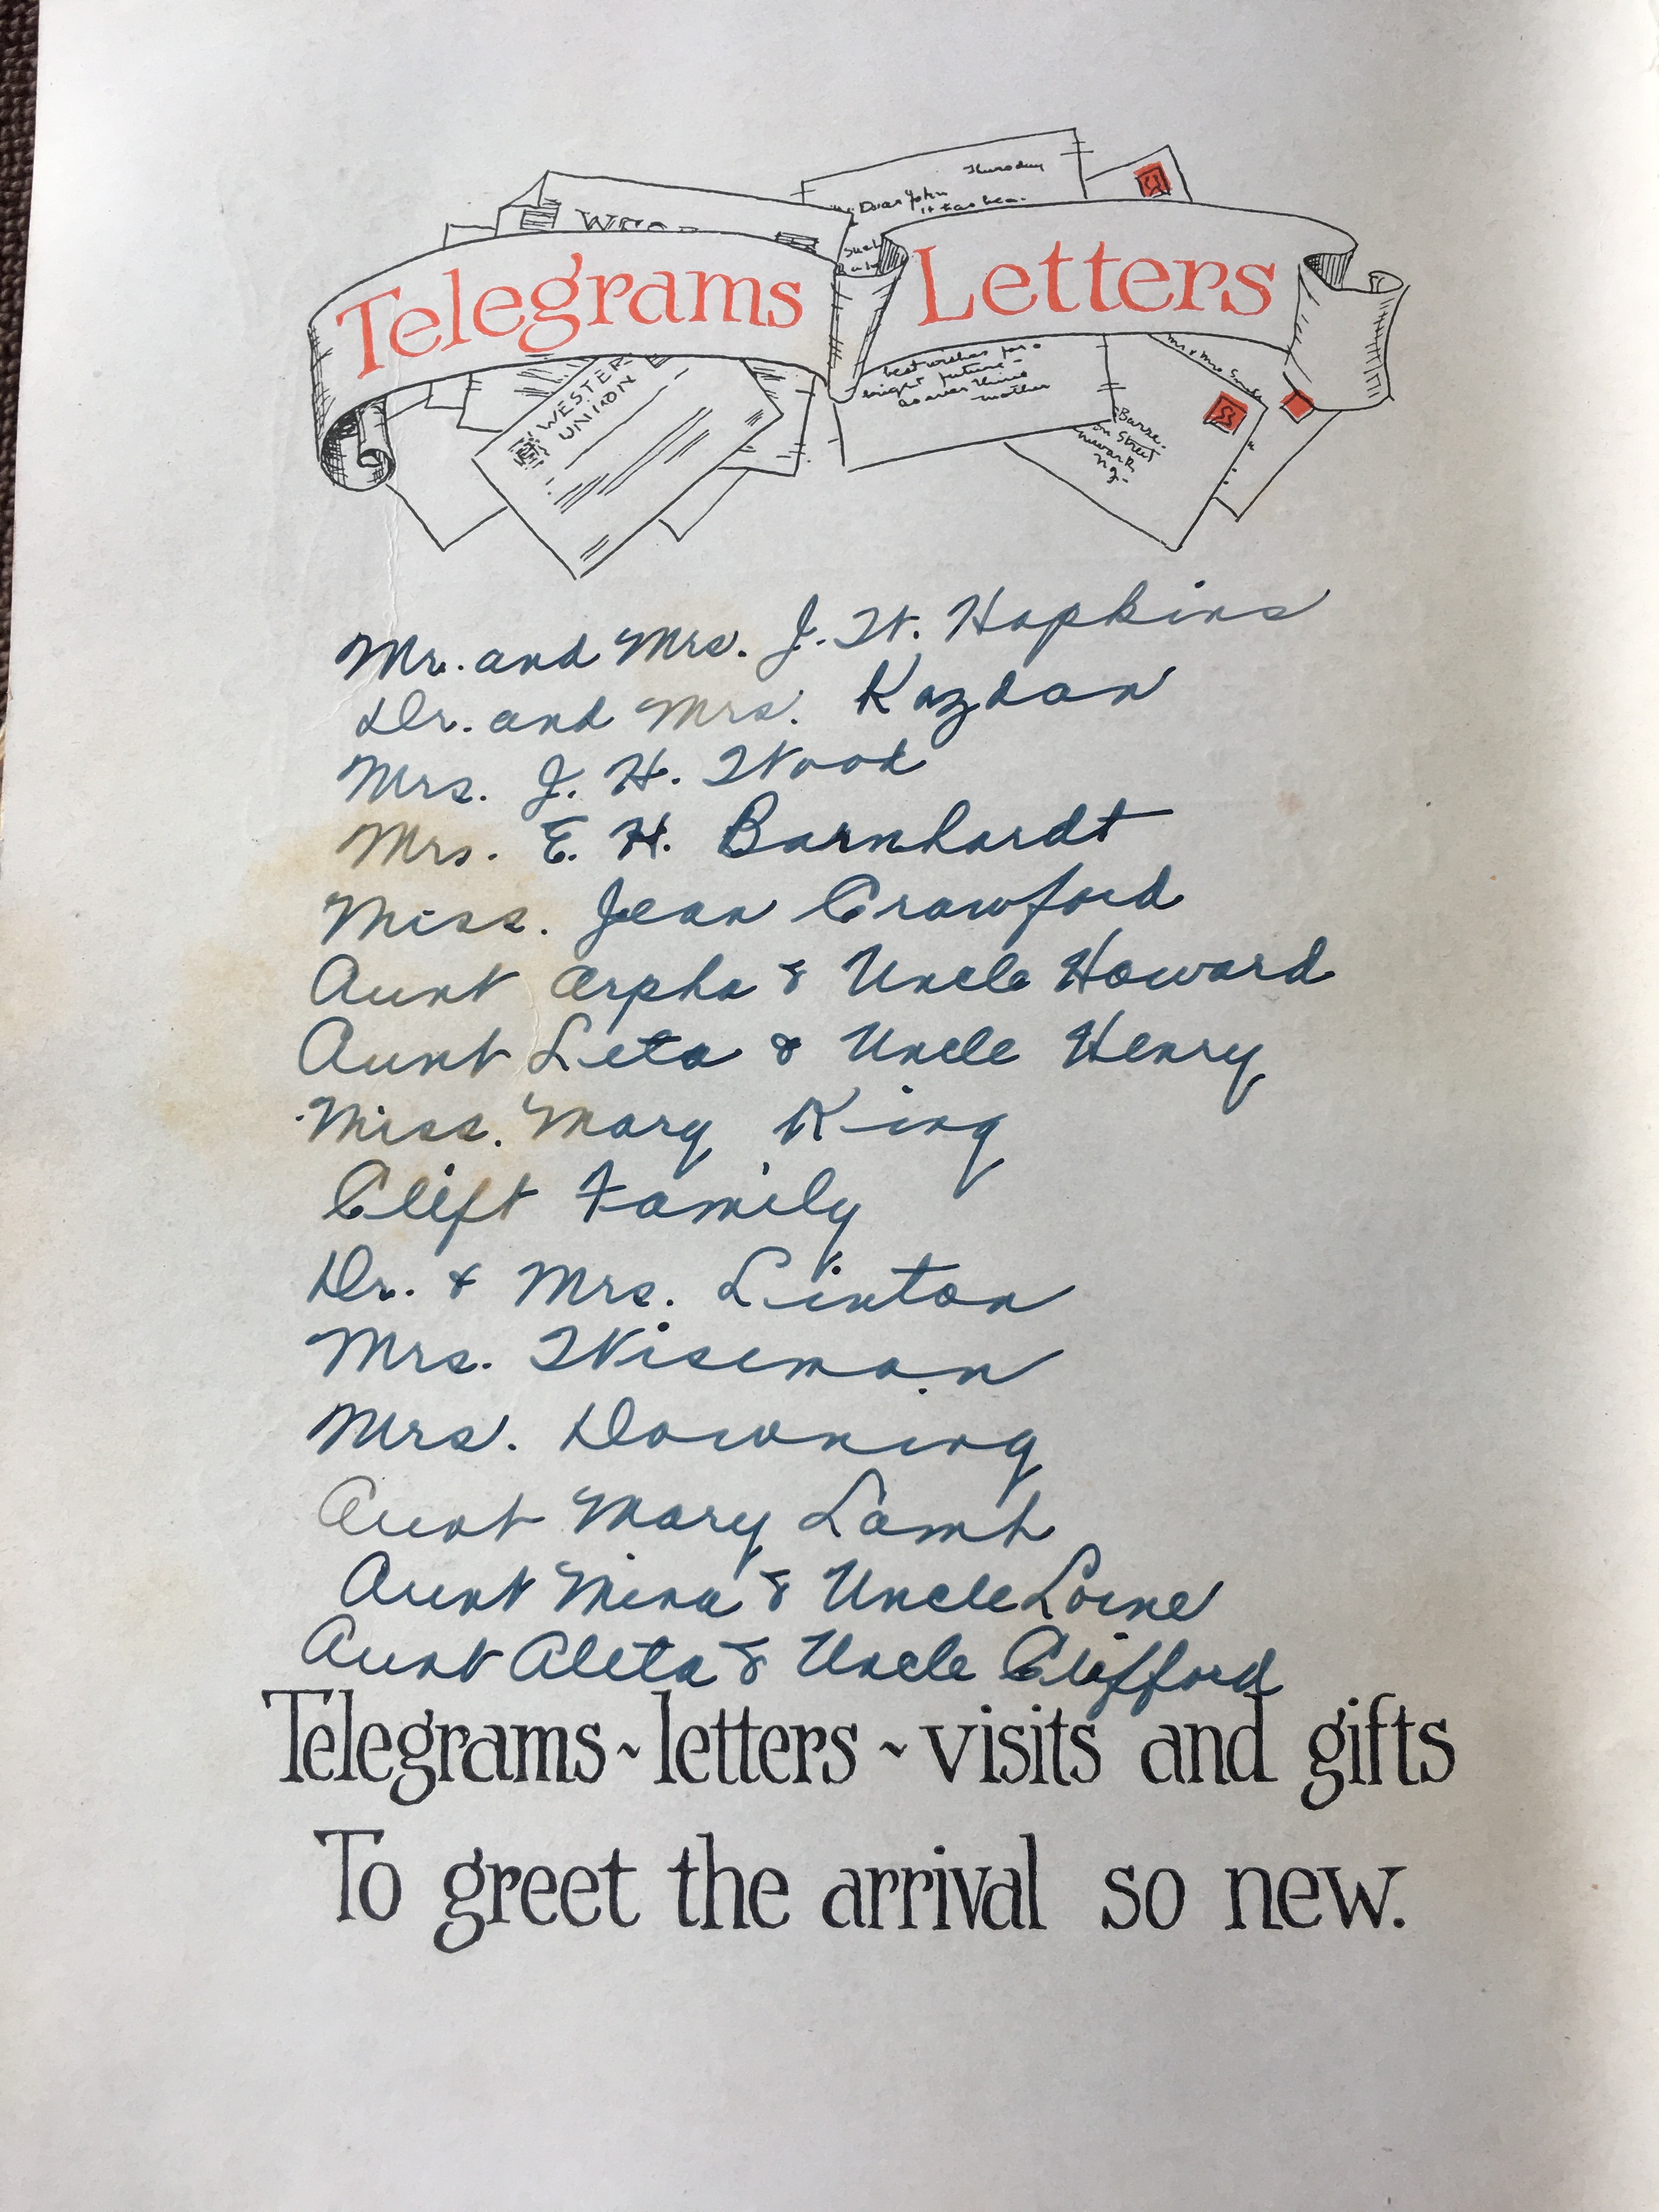 Thursday
Dear John
it has been
Telegrams Letters
WESTERN
UNION
best wishes for a
bright future
as ever thine
mother
Mr & Mrs
on Street
Newark
N.J.
Mr. and Mrs. J. W. Hopkins
Dr. and Mrs. Kazdan
Mrs. J. H. Wood
Mrs. E. H. Barnhardt
Miss. Jean Crawford
Aunt Orpha & Uncle Howard
Aunt Leta & Uncle Henry
Miss. Mary King
Clift Family
Dr. & Mrs. Linton
Mrs. Wiseman
Mrs. Downing
Aunt Mary Lamb
Aunt Mina & Uncle Lorne
Aunt Aleta & Uncle Clifford
Telegrams ~ letters ~ visits and gifts
To greet the arrival so new.